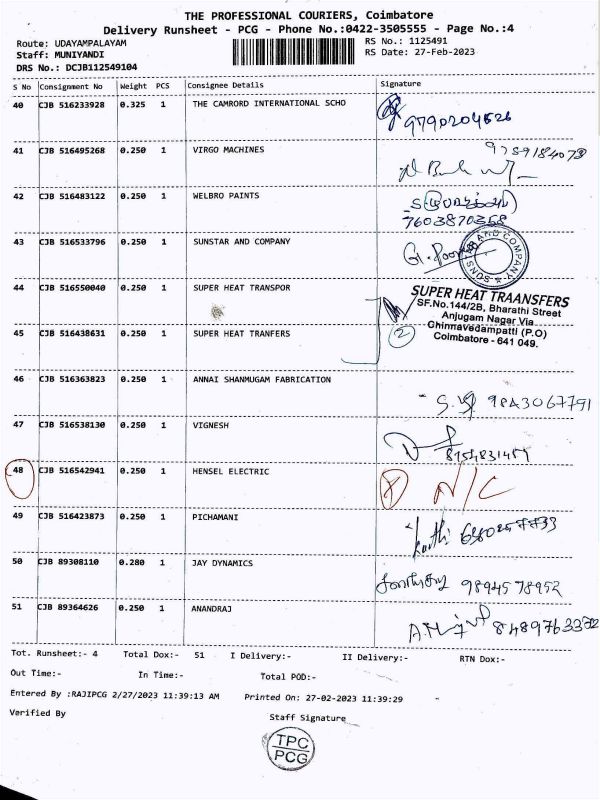 THE PROFESSIONAL COURIERS, Coimbatore
Delivery Runsheet - PCG - Phone No.:0422-3505555 - Page No.:4
Route: UDAYAMPALAYAM RS No.: 1125491
Staff: MUNIYANDI RS Date: 27-Feb-2023
DRS No.: DCJB112549104
S No Consignment No Weight PCS Consignee Details Signature
40 CJB 516233928 0.325 1 THE CAMRORD INTERNATIONAL SCHO
9790204626
41 CJB 516495268 0.250 1 VIRGO MACHINES
42 CJB 516483122 0.250 1 WELBRO PAINTS
7603870368
43 CJB 516533796 0.250 1 SUNSTAR AND COMPANY
44 CJB 516550040 0.250 1 SUPER HEAT TRANSPOR
SUPER HEAT TRAANSFERS
SF.No.144/2B, Bharathi Street
Anjugam Nagar Via
Chinnavedampatti (P.O)
Coimbatore - 641 049.
45 CJB 516438631 0.250 1 SUPER HEAT TRANFERS 2
46 CJB 516363823 0.250 1 ANNAI SHANMUGAM FABRICATION
9843067791
47 CJB 516538130 0.250 1 VIGNESH
48 CJB 516542941 0.250 1 HENSEL ELECTRIC N/C
49 CJB 516423873 0.250 1 PICHAMANI
50 CJB 89308110 0.280 1 JAY DYNAMICS
9894578952
51 CJB 89364626 0.250 1 ANANDRAJ
Tot. Runsheet:- 4 Total Dox:- 51 I Delivery:- II Delivery:- RTN Dox:-
Out Time:- In Time:- Total POD:-
Entered By :RAJIPCG 2/27/2023 11:39:13 AM Printed On: 27-02-2023 11:39:29
Verified By Staff Signature
TPC
PCG